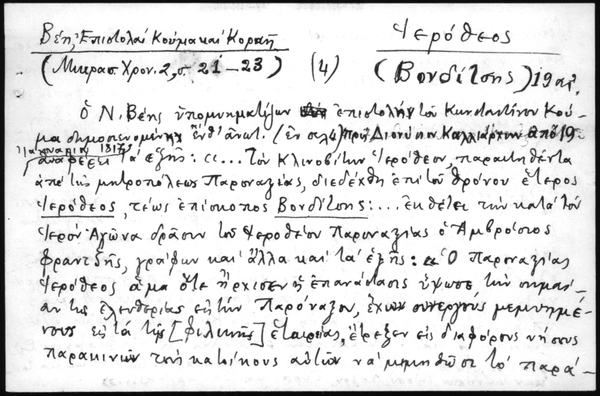 Βέη, Ἐπιστολαί Κούμα καί Κοραῆ
Ἱερόθεος
(Μικρασ. Χρον. 2, σ. 21-23) (4) (Βονδίτσης) 19 αἰ.
Ὁ Ν. Βέης ὑπομνηματίζων ἐπιστολήν τοῦ Κωνσταντίνου Κού-
μα δημοσιευομένην ἐνθ' ἀνωτ. (ἐν σελ. 4) πρός Διονύσιον ἀπό 19
1817
ἀναφέρει τά ἑξῆς: «... Τόν Κλινοβίτην Ἱερόθεον, παραιτηθέντα
ἀπό τῆς μητροπόλεως Παροναξίας, διεδέχθη ἐπί τοῦ θρόνου ἕτερος
Ἱερόθεος, τέως ἐπίσκοπος Βονδίτσης: ... ἐκθέτει τήν κατά τόν
Ἱερόν Ἀγῶνα δρᾶσιν τοῦ Ἱεροθέου Παροναξίας ὁ Ἀμβρόσιος
Φραντζῆς, γράφων καί ἄλλα καί τά ἑξῆς: «Ὁ Παροναξίας
Ἱερόθεος ἅμα ὅτε ἤρχισεν ἡ ἐπανάστασις ὕψωσε τήν σημαί-
αν τῆς ἐλευθερίας εἰς τήν Παρόναξον, ἔχων συνεργούς μεμυημέ-
νους εἰς τά τῆς [Φιλικῆς] ἑταιρείας, ἔτρεξεν εἰς διαφόρους νήσους
παρακινῶν τούς κατοίκους αὐτῶν νά μιμηθῶσι τό παρά-